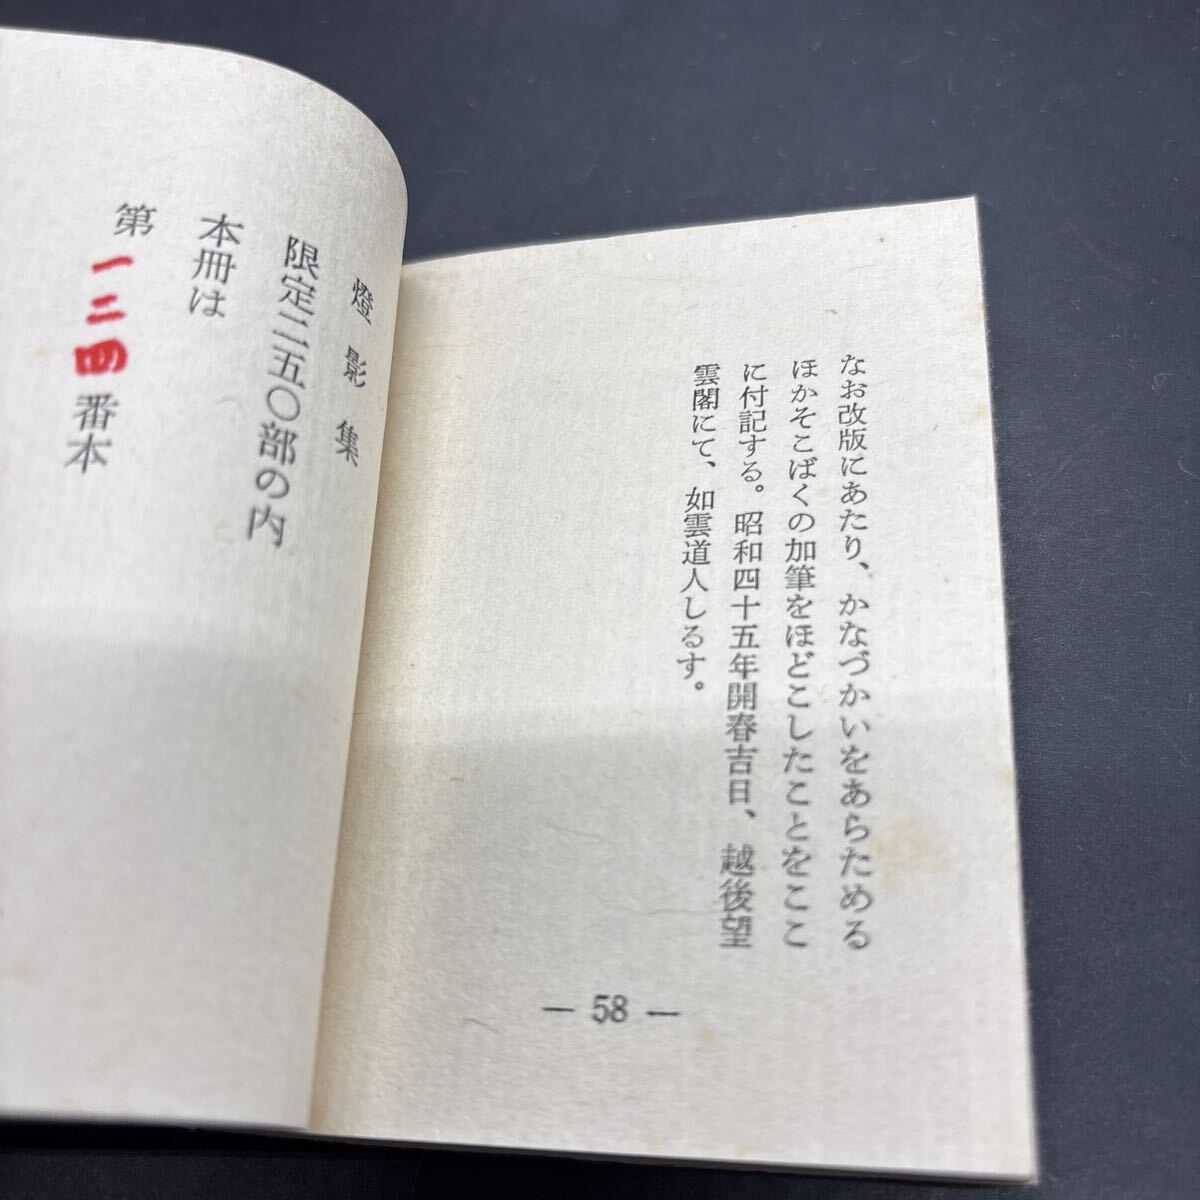 なお改版にあたり、かなづかいをあらためる
ほかそこばくの加筆をほどこしたことをここ
に付記する。昭和四十五年開春吉日、越後望
雲閣にて、如雲道人しるす。
— 58 —
燈影集
限定二五〇部の内
本冊は
第一二四番本